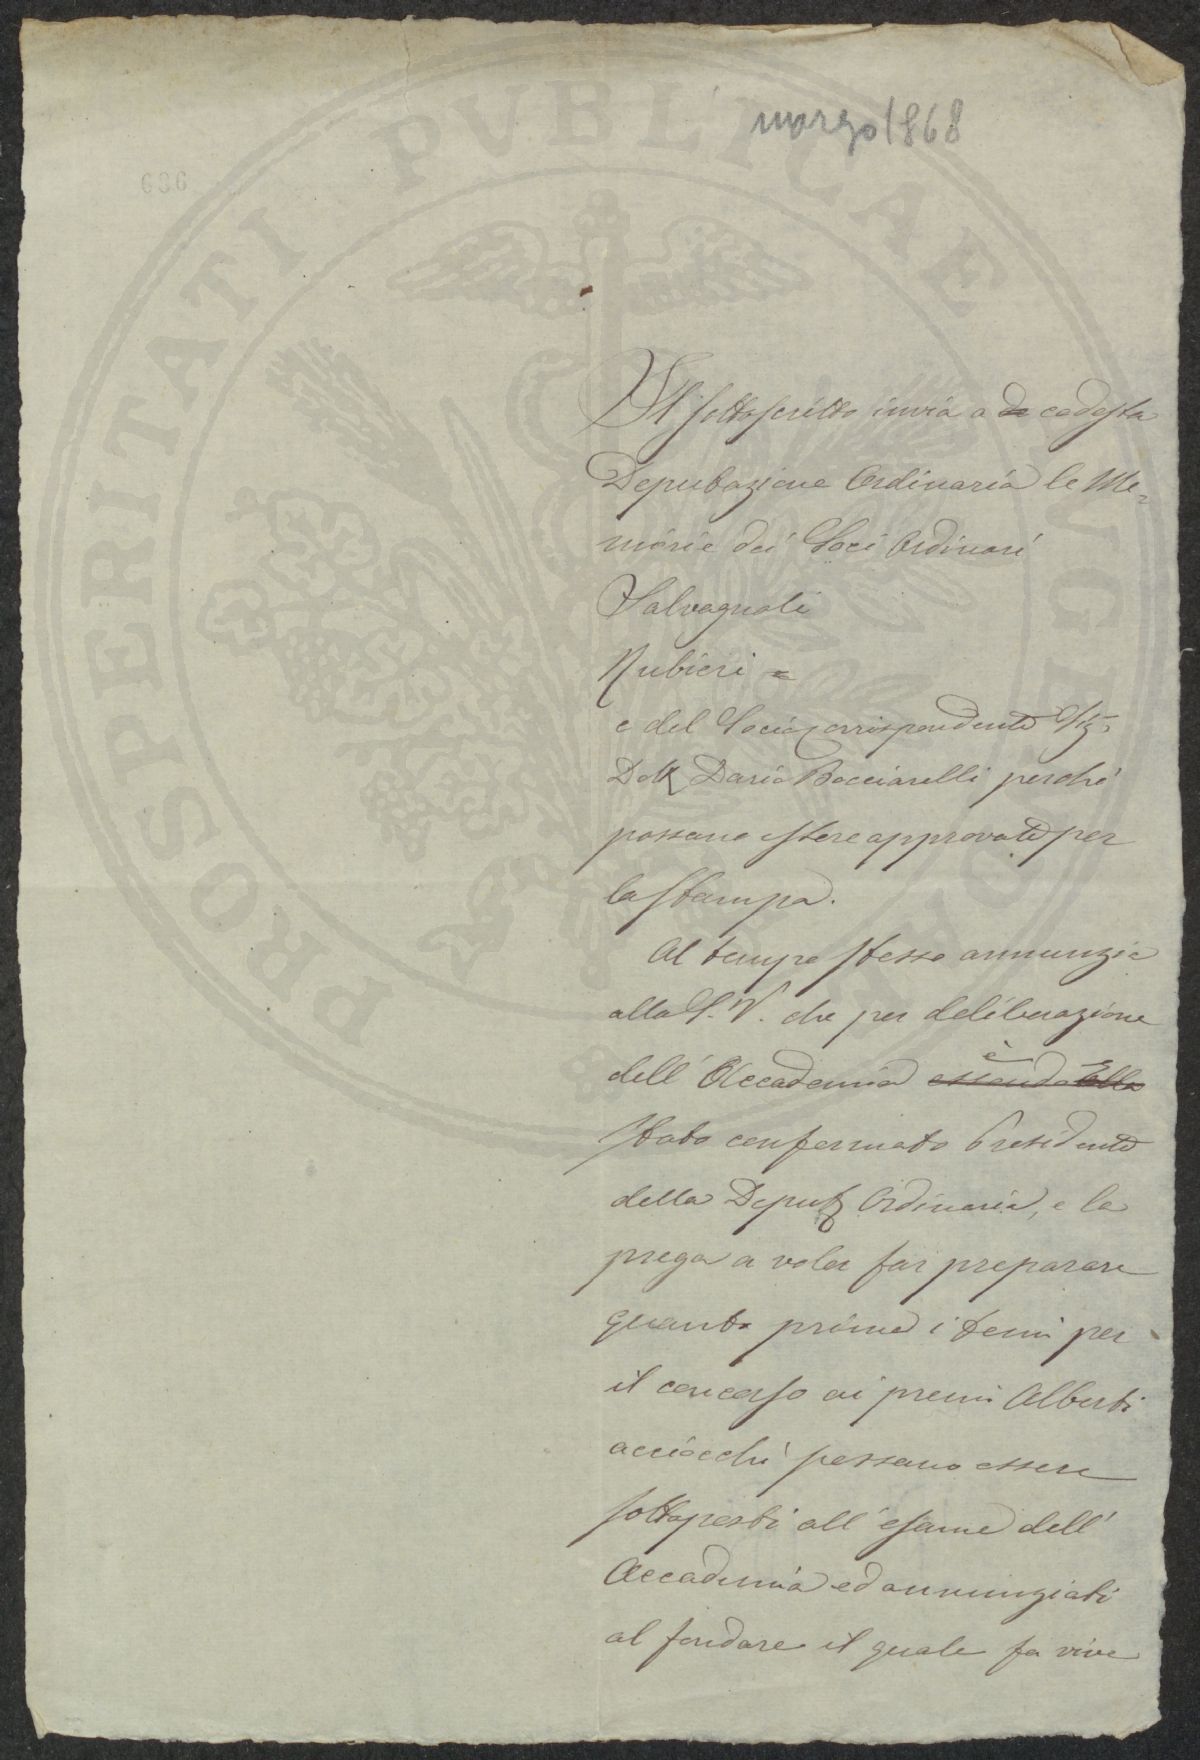 marzo 1868
686
PROSPERITATI PUBLICAE AUGENDAE
Il sottoscritto invia a codesta
Deputazione Ordinaria le Me-
morie dei Soci Ordinari
Salvagnoli
Rubieri =
e del Socio Corrispondente Sig.
Dott Dario Bocciarelli perché
possano essere approvate per
la stampa.
Al tempo stesso annunzia
alla S. V. che per deliberazione
dell' Accademia è essendo Ella
stato confermato Presidente
della Deput Ordinaria, e la
prega a voler far preparare
quanto prima i temi per
il concorso ai premi Alberti
acciocchè possano essere
sottoposti all'esame dell'
Accademia ed annunziati
al fondare il quale fa vive